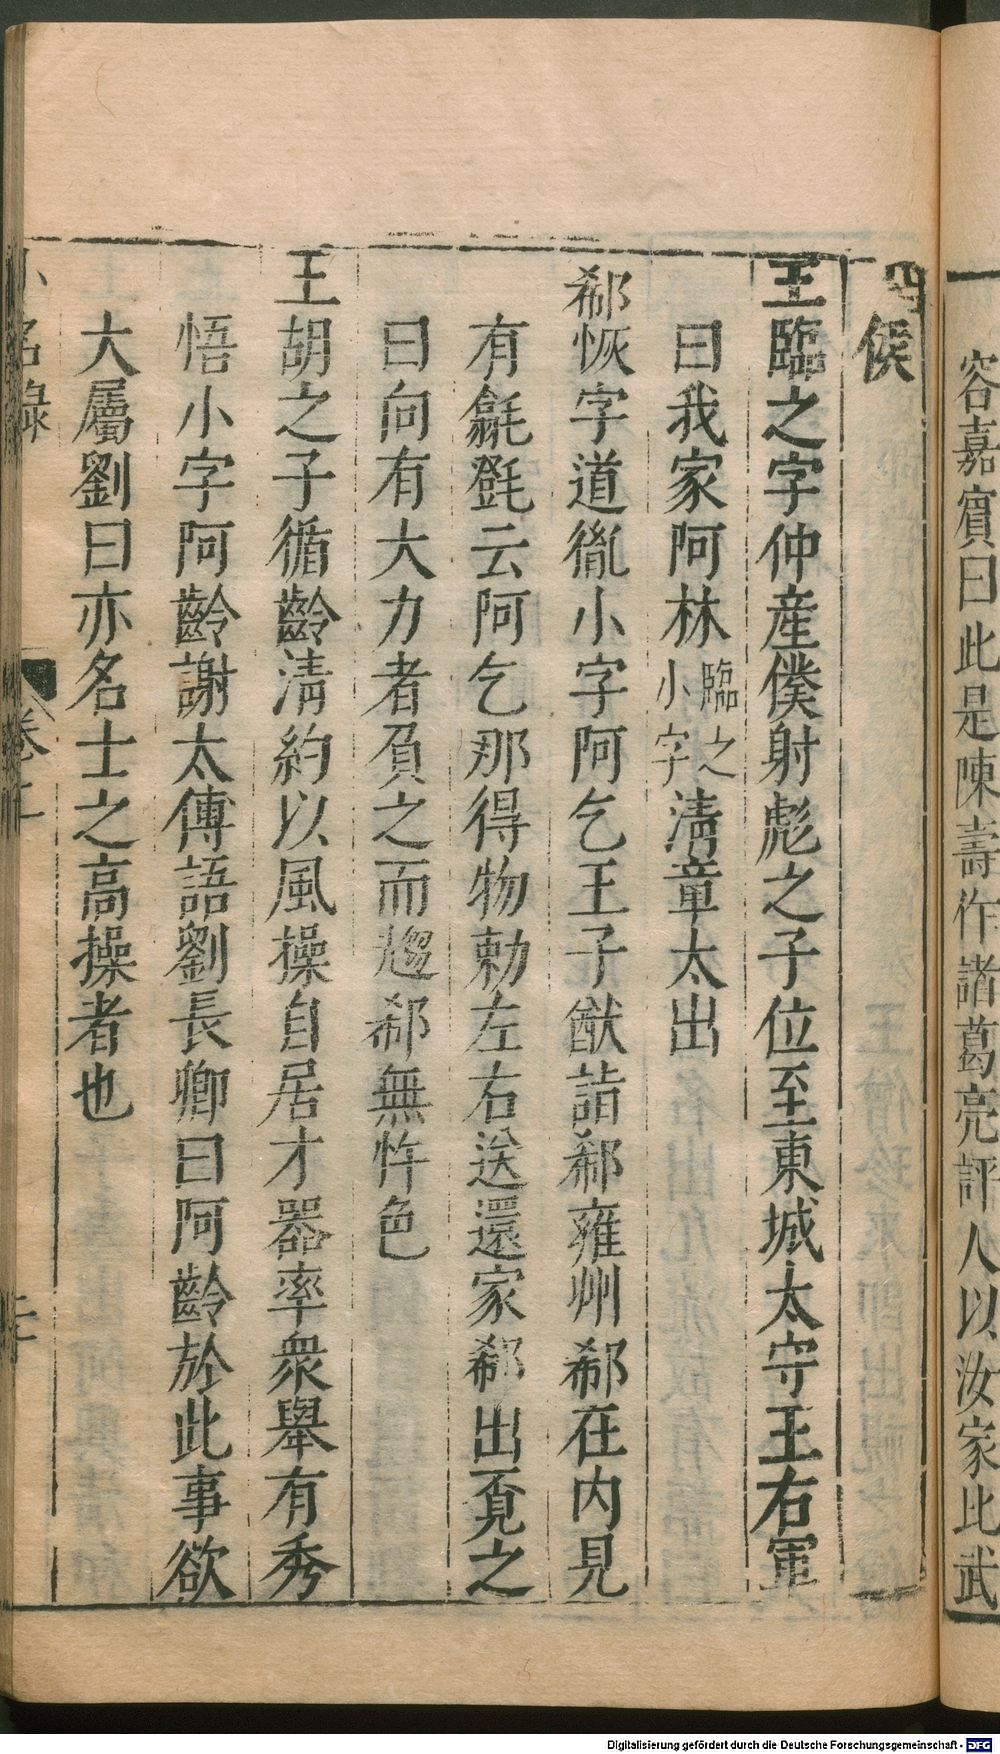 容嘉賓曰此是陳壽作諸葛亮評人以汝家比武
侯
王臨之字仲産僕射彪之子位至東城太守王右軍
曰我家阿林臨之小字淸章太出
郗恢字道胤小字阿乞王子猷詣郗雍州郗在内見
有㲪㲪云阿乞那得物勅左右送還家郗出覔之
曰向有大力者負之而趨郗無忤色
王胡之子循齡淸約以風操自居才器率衆舉有秀
悟小字阿齡謝太傅語劉長卿曰阿齡於此事欲
大厲劉曰亦名士之高操者也
小名錄
卷上
Digitalisierung gefördert durch die Deutsche Forschungsgemeinschaft - DFG